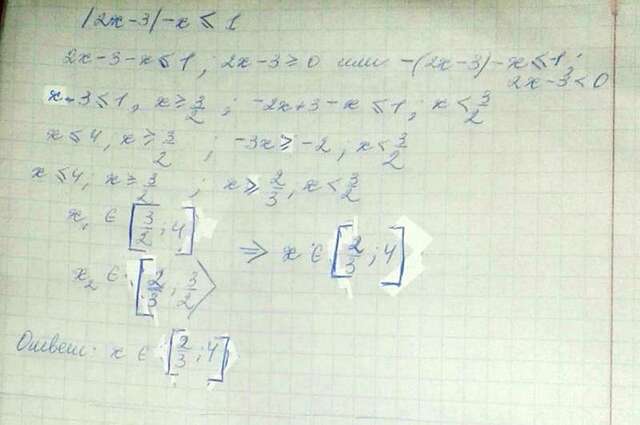 |2x-3|-x ≤ 1
2x-3-x ≤ 1; 2x-3 ≥ 0 или -(2x-3)-x ≤ 1;
2x-3 < 0
x-3 ≤ 1, x ≥ 3/2 ; -2x+3-x ≤ 1; x < 3/2
x ≤ 4, x ≥ 3/2 ; -3x ≥ -2, x < 3/2
x ≤ 4; x ≥ 3/2 ; x ≥ 2/3, x < 3/2
x₁ ∈ [3/2; 4]
⇒ x ∈ [2/3; 4]
x₂ ∈ [2/3; 3/2)
Ответ: x ∈ [2/3; 4]